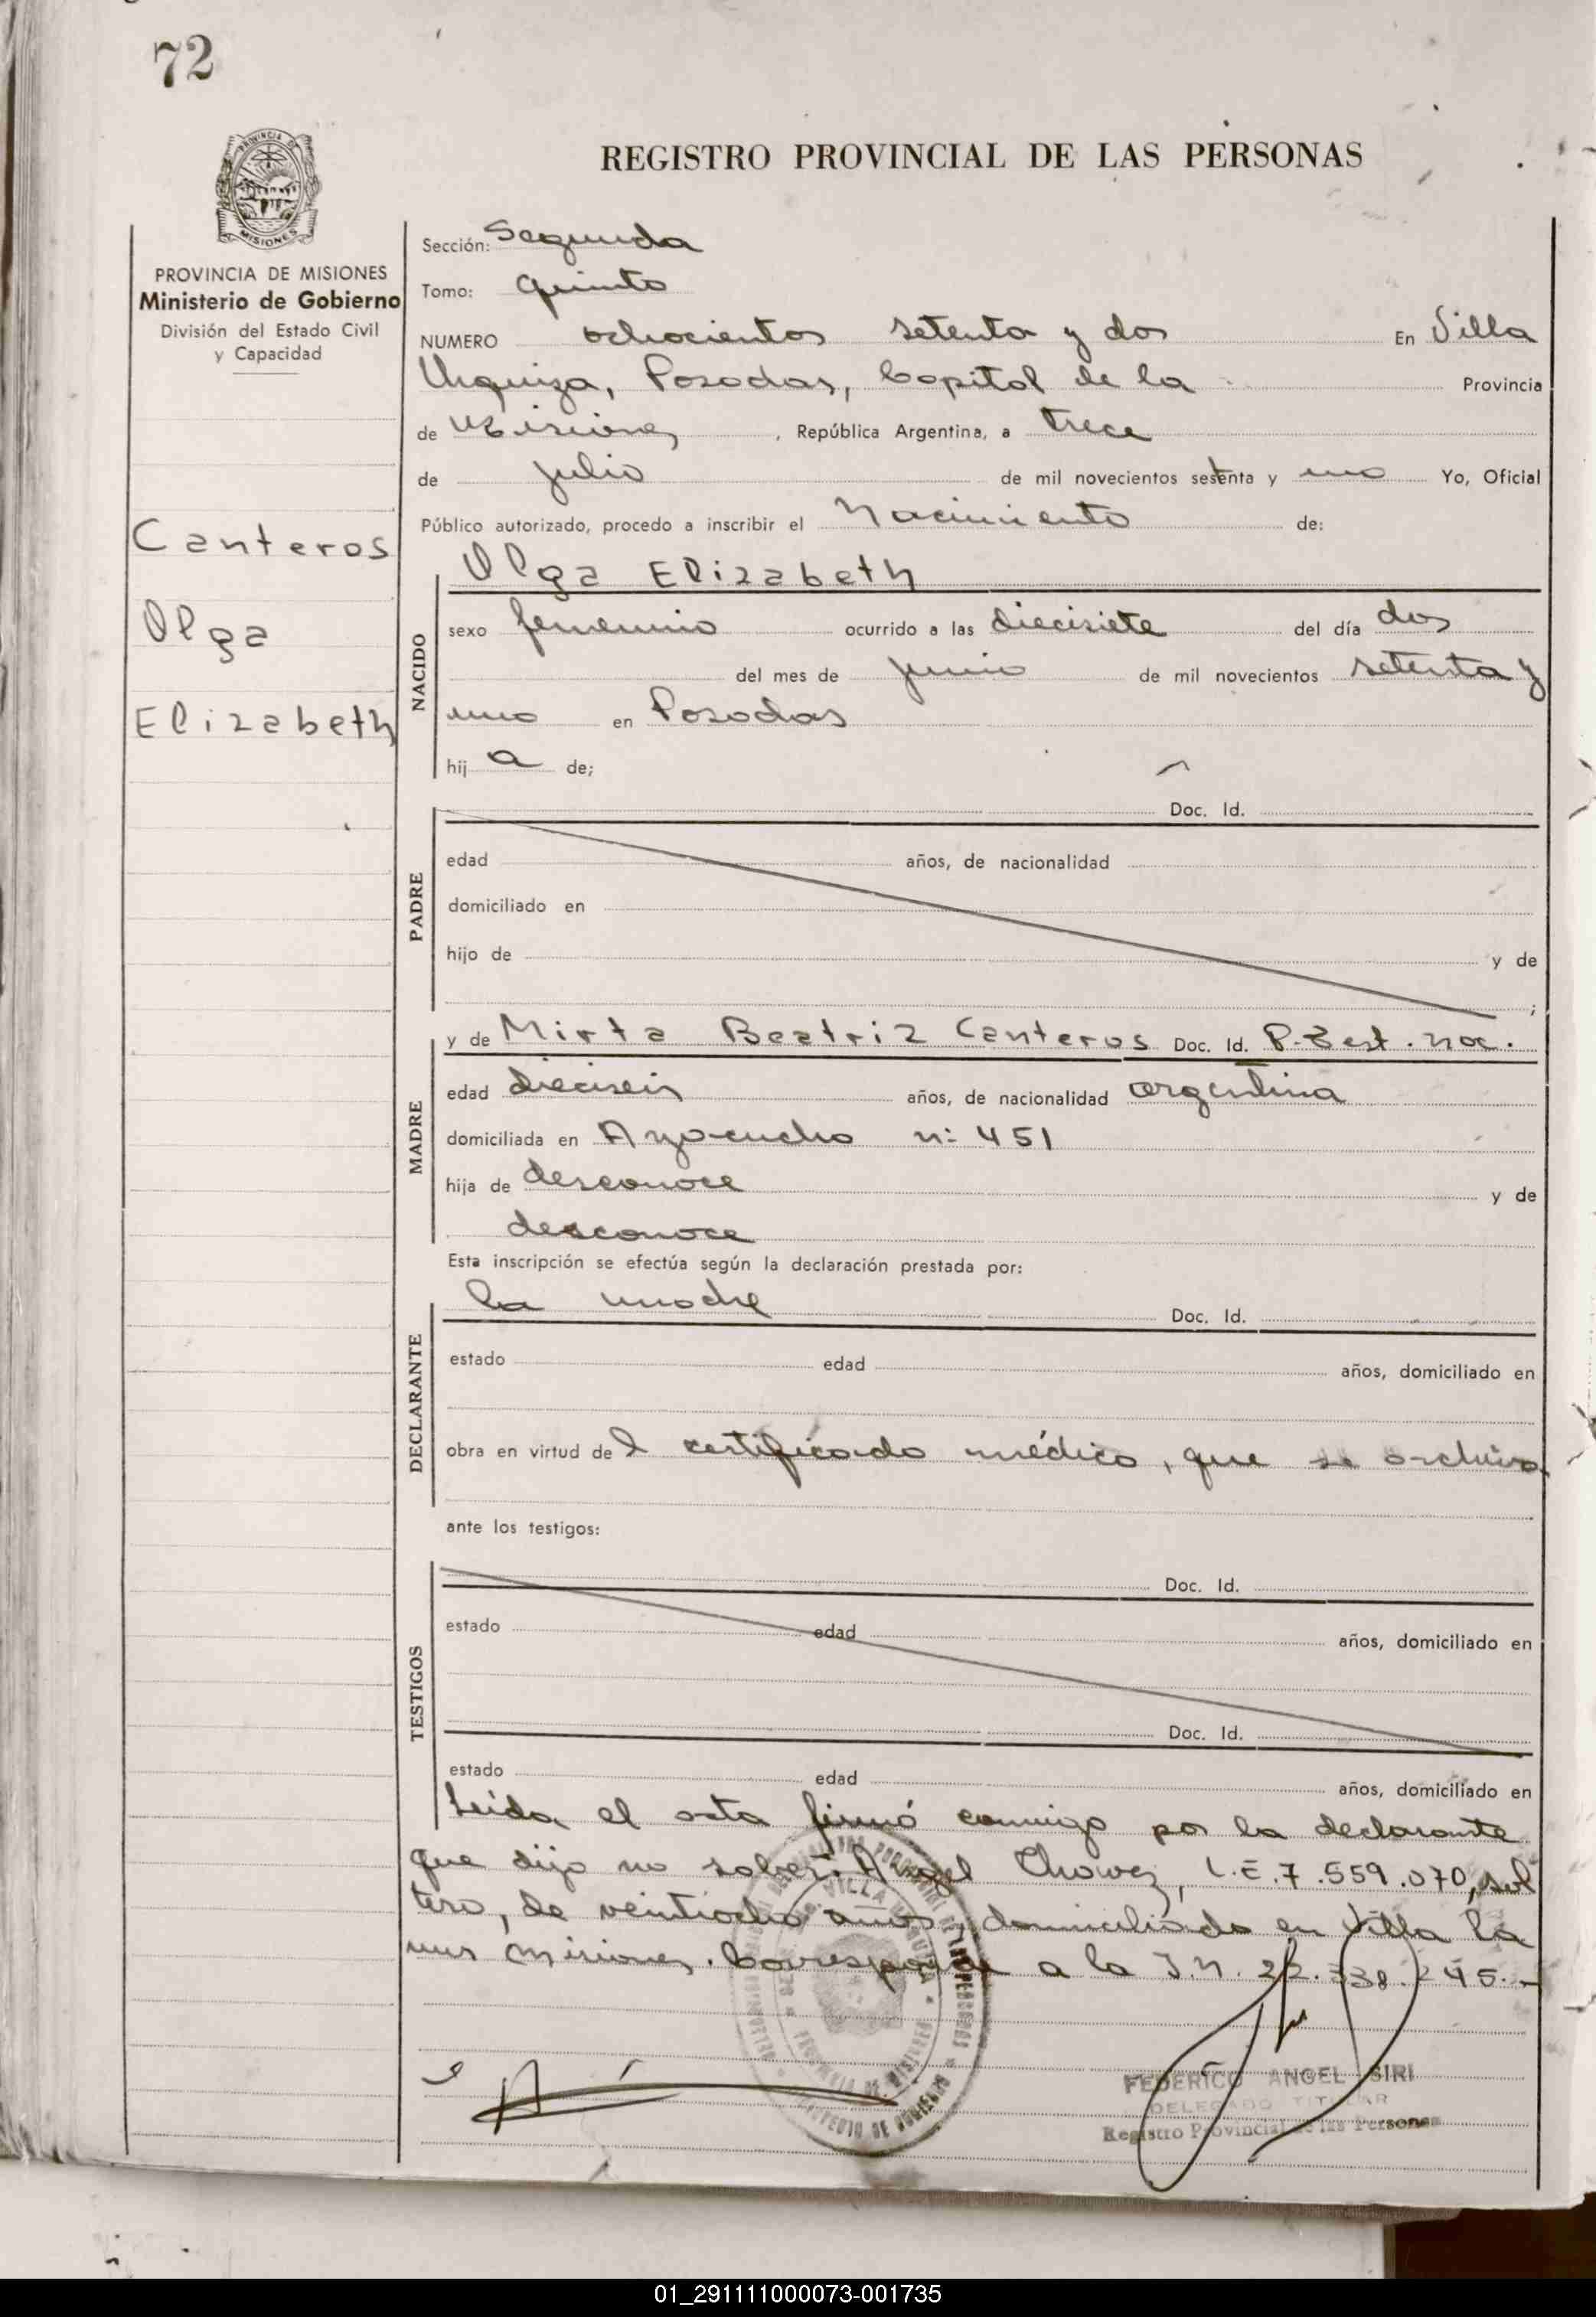 72
REGISTRO PROVINCIAL DE LAS PERSONAS
PROVINCIA DE MISIONES
Ministerio de Gobierno
División del Estado Civil
y Capacidad
Canteros
Olga
Elizabeth
Sección: Segunda
Tomo: quinto
NUMERO ochocientos setenta y dos En Villa
Urquiza, Posadas, Capital de la Provincia
de Misiones, República Argentina, a trece
de julio de mil novecientos setenta y uno Yo, Oficial
Público autorizado, procedo a inscribir el Nacimiento de:
NACIDO
Olga Elizabeth
sexo femenino ocurrido a las diecisiete del día dos
del mes de junio de mil novecientos setenta y
uno en Posadas
hija de;
PADRE
Doc. Id.
edad años, de nacionalidad
domiciliado en
hijo de y de
;
MADRE
y de Mirta Beatriz Canteros Doc. Id. nac.
edad dieciseis años, de nacionalidad argentina
domiciliada en Ayacucho n: 451
hija de desconoce y de
desconoce
Esta inscripción se efectúa según la declaración prestada por:
DECLARANTE
la madre Doc. Id.
estado edad años, domiciliado en
obra en virtud del certificado médico, que se archiva
ante los testigos:
TESTIGOS
Doc. Id.
estado edad años, domiciliado en
Doc. Id.
estado edad años, domiciliado en
Leída el acta firmó conmigo por la declarante
que dijo no saber: Angel Chavez, L.E.7.559.070, sol
tero, de veintiocho años, domiciliado en Villa La
nus Misiones. Corresponde a la I.N. 22.
FEDERICO ANGEL SIRI
DELEGADO TITULAR
Registro Provincial de las Personas
01_291111000073-001735